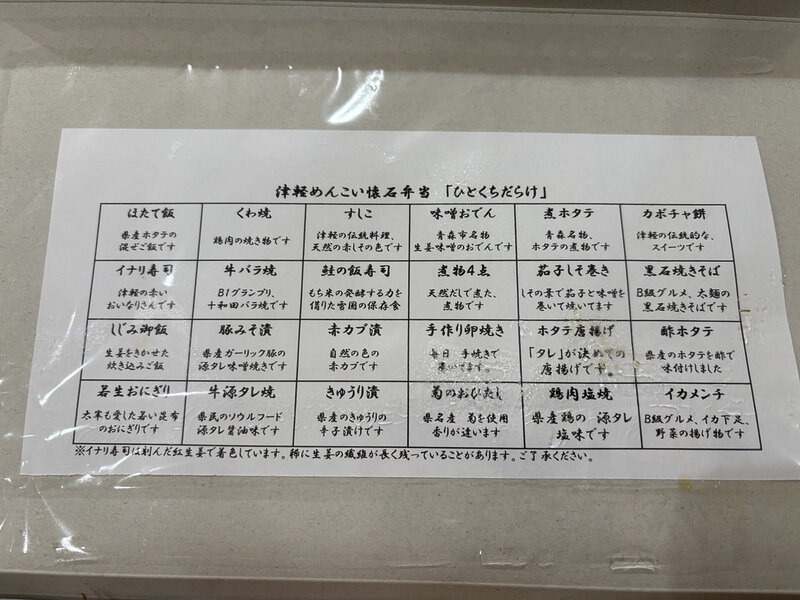 津軽めんこい懐石弁当 「ひとくちだらけ」
ほたて飯
県産ホタテの
混ぜご飯です
くわ焼
鶏肉の焼き物です
すしこ
津軽の伝統料理、
天然の赤しその色です
味噌おでん
青森市名物、
生姜味噌のおでんです
煮ホタテ
青森名物、
ホタテの煮物です
カボチャ餅
津軽の伝統的な、
スイーツです
イナリ寿司
津軽の赤い
おいなりさんです
牛バラ焼
B1グランプリ、
十和田バラ焼です
鮭の飯寿司
もち米の発酵する力を
借りた雪国の保存食
煮物4点
天然だしで煮た、
煮物です
茄子しそ巻き
しその葉で茄子と味噌を
巻いて焼いてます
黒石焼きそば
B級グルメ、太麺の
黒石焼きそばです
しじみ御飯
生姜をきかせた
炊き込みご飯
豚みそ漬
県産ガーリック豚の
源タレ味噌焼きです
赤カブ漬
自然の色の
赤カブです
手作り卵焼き
毎日 手焼きで
巻いてます。
ホタテ唐揚げ
「タレ」が決めての
唐揚げです。
酢ホタテ
県産のホタテを酢で
味付けしました
若生おにぎり
太宰も愛した若い昆布
のおにぎりです
牛源タレ焼
県民のソウルフード
源タレ醤油味です
きゅうり漬
県産のきゅうりの
辛子漬けです
菊のおひたし
県名産 菊を使用
香りが違います
鶏肉塩焼
県産鶏の 源タレ
塩味です
イカメンチ
B級グルメ、イカ下足、
野菜の揚げ物です
※イナリ寿司は刻んだ紅生姜で着色しています。稀に生姜の繊維が長く残っていることがあります。ご了承ください。